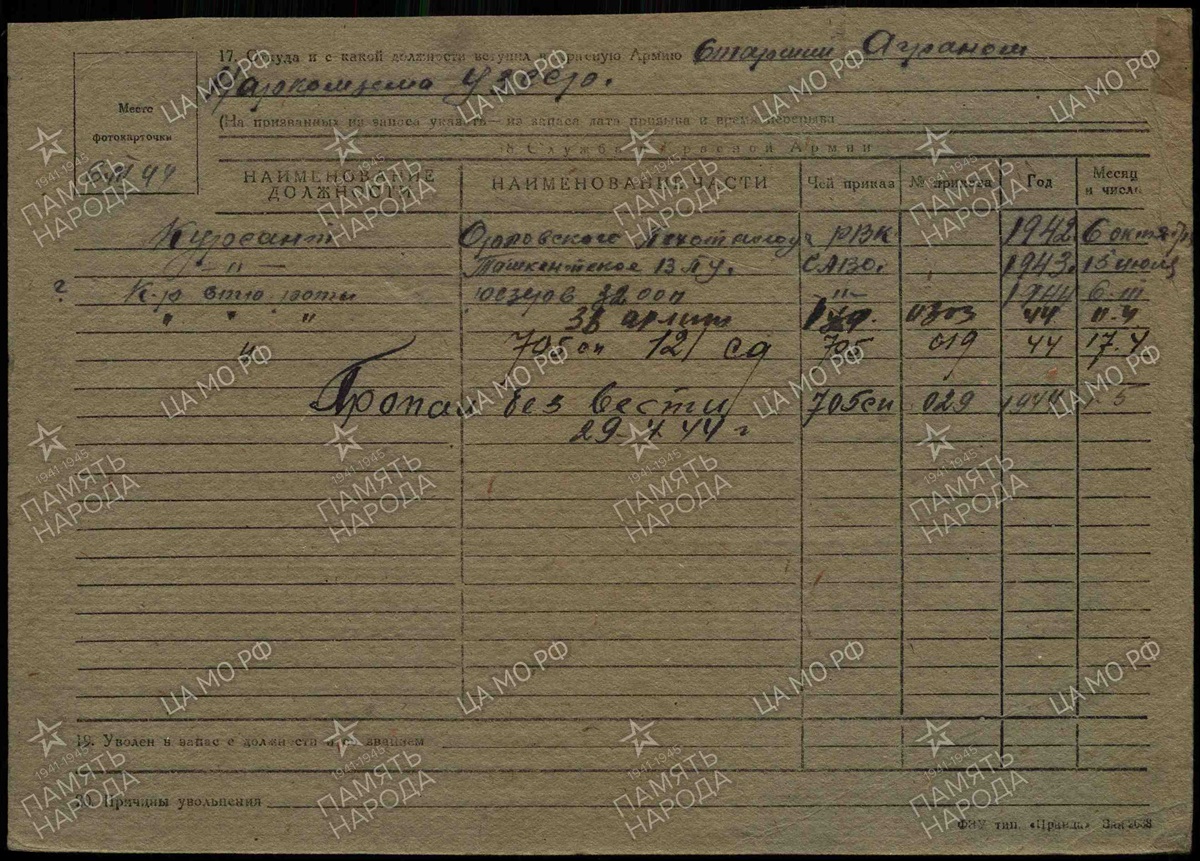 17. Откуда и с какой должности вступил в Красную Армию Старший Агроном
Наркомзема УзССР.
Место фотокарточки
(На призванных из запаса указать — из запаса дата призыва и время перерыва
18. Служба в Красной Армии
НАИМЕНОВАНИЕ ДОЛЖНОСТИ НАИМЕНОВАНИЕ ЧАСТИ Чей приказ № приказа Год Месяц и число
Курсант Орловского Пехотного РВК 1942 6 октября
— " — Ташкентское В.П.У. САВО. 1943. 15 июля
К-р стр роты 32 1944 6.III
" " " 38 0303 44
" 705 сп 121 сд 705 019 44 17.4
Пропал без вести 705сп 029 1944 1.5
29.4.44 г
19. Уволен в запас с должности и со званием
20. Причины увольнения
ФЗУ тип. «Правда»
ЦА МО РФ
1941-1945
ПАМЯТЬ НАРОДА